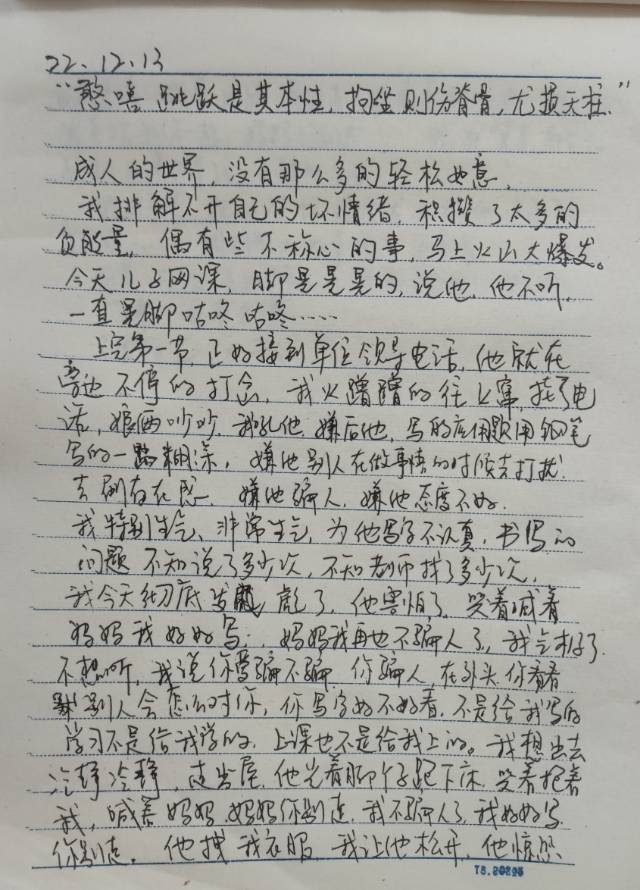 22.12.13
“憨嘻跳跃是其本性,拘坐则伤脊骨,尤损天柱.”
成人的世界,没有那么多的轻松如意,
我排解不开自己的坏情绪,积攒了太多的
负能量,偶有些不称心的事,马上火山大爆发。
今天儿子网课,脚晃晃晃的,说他,他不听,
一直晃脚咕咚咕咚……
上完第一节,正好接到单位领导电话,他就在
旁边不停的打念,我火蹭蹭的往上窜,挂了电
话,娘两吵吵,我吼他,嫌后他,写的应用题用钢笔
写的一路糊涂,嫌他别人在做事情的时候去打扰
去刷存在感,嫌他骗人,嫌他态度不好.
我特别生气、非常生气,为他写字不认真,书写的
问题不知说了多少次,不知老师找了多少次,
我今天彻底发飙了,他害怕了,哭着喊着
妈妈我好好写;妈妈我再也不骗人了,我气极了
不想听,我说你骗不骗,你骗人,在外头,你看看
别人会怎么对你,你写字好不好看,不是给我写的
学习不是给我学的,上课也不是给我上的。我想出去
冷静冷静,走出屋,他光着脚丫子跑下床,哭着抱着
我,喊着妈妈,妈妈你别走,我不骗人了,我好好写
你别走,他拽我衣服,我让他松开,他惊恐
TS.20295